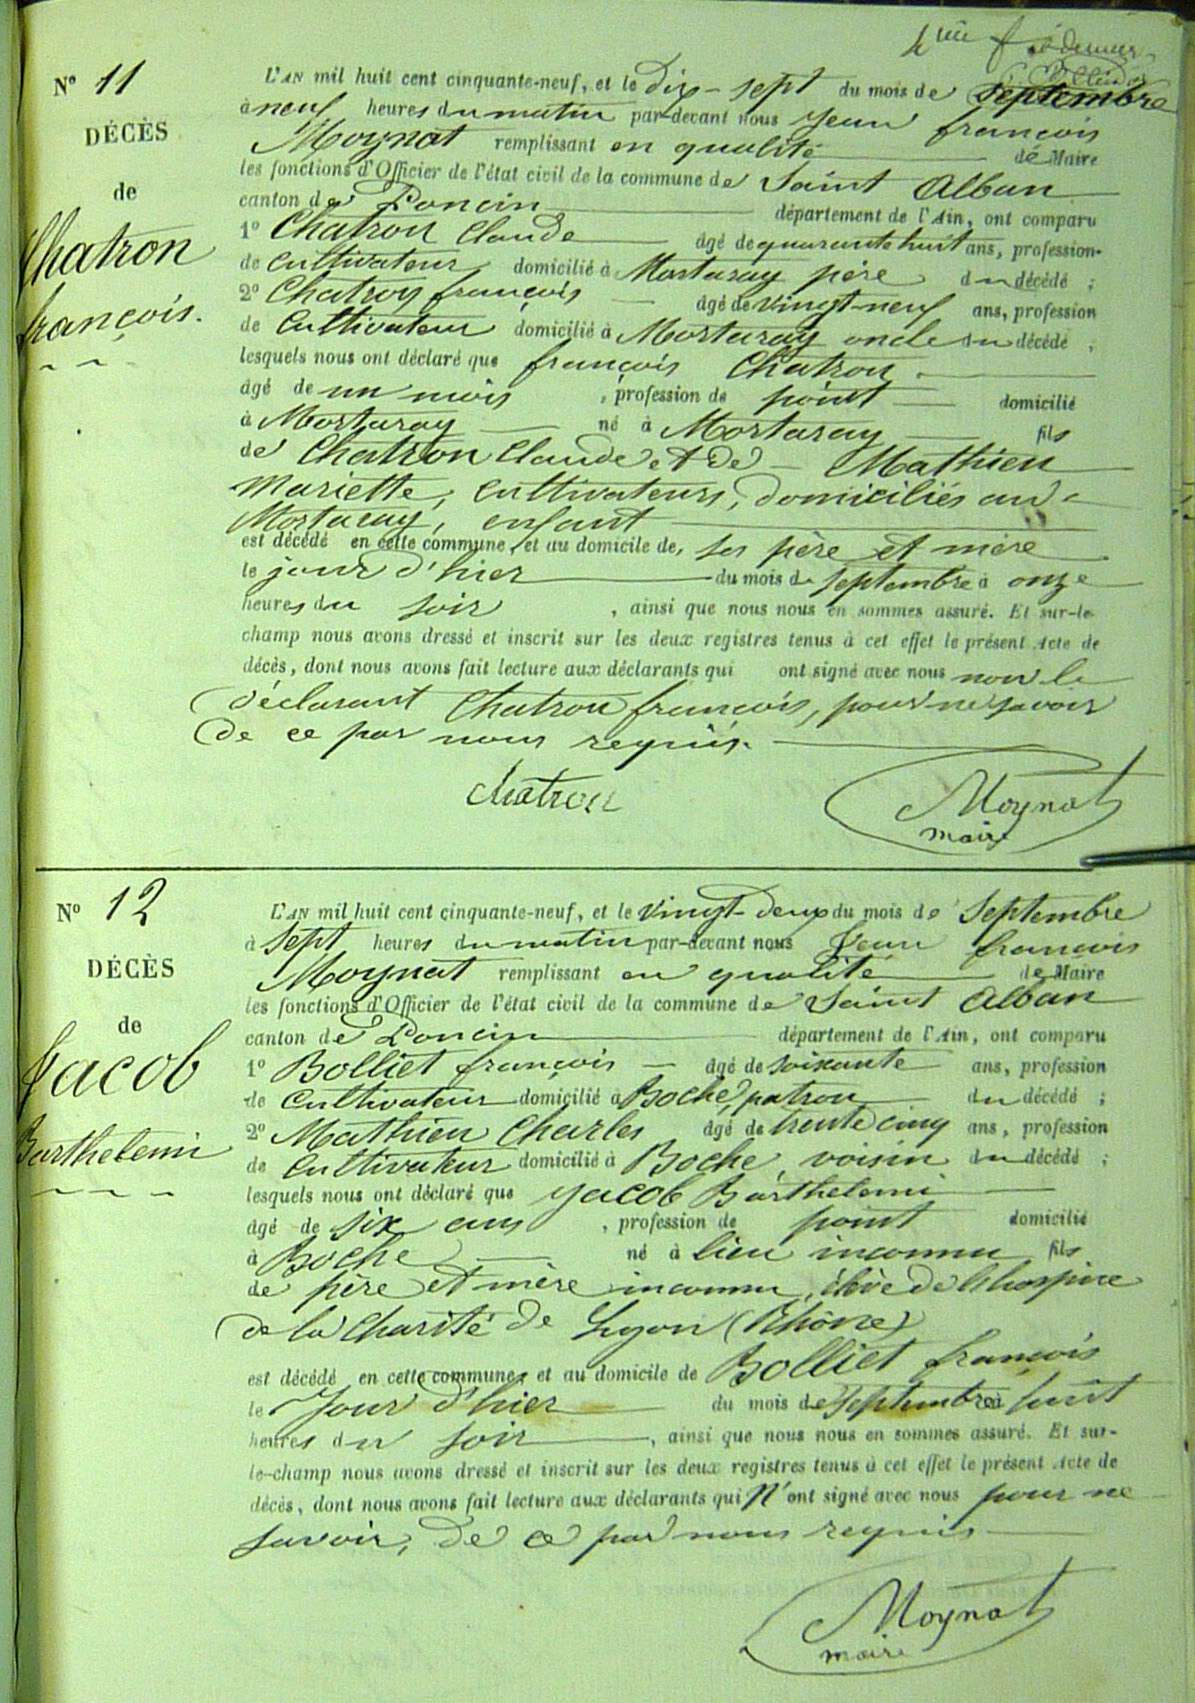 4me
Nº 11
DÉCÈS
de
Chatron
françois.
L'AN mil huit cent cinquante-neuf, et le dix-sept du mois de septembre
à neuf heures du matin par-devant nous Jean françois
Moynat remplissant en qualité de Maire
les fonctions d'Officier de l'état civil de la commune de Saint Alban
canton de Poncin département de l'Ain, ont comparu
1º Chatron Claude âgé de quarante huit ans, profession
de cultivateur domicilié à Mortaray père du décédé ;
2º Chatron françois âgé de vingt-neuf ans, profession
de Cultivateur domicilié à Mortaray oncle du décédé ,
lesquels nous ont déclaré que françois Chatron
âgé de un mois , profession de point domicilié
à Mortaray né à Mortaray fils
de Chatron Claude et de Mathieu
Mariette, cultivateurs, domiciliés au
Mortaray, enfant
est décédé en cette commune, et au domicile de ses père et mère
le jour d'hier du mois de septembre à onze
heures du soir , ainsi que nous nous en sommes assuré. Et sur-le-
champ nous avons dressé et inscrit sur les deux registres tenus à cet effet le présent Acte de
décès, dont nous avons fait lecture aux déclarants qui ont signé avec nous non le
déclarant Chatron françois, pour ne savoir
de ce par nous requis.
Chatron
Moynat
maire
Nº 12
DÉCÈS
de
Jacob
Barthelemi
L'AN mil huit cent cinquante-neuf, et le vingt-deux du mois de Septembre
à Sept heures du matin par-devant nous Jean françois
Moynat remplissant en qualité de Maire
les fonctions d'Officier de l'état civil de la commune de Saint Alban
canton de Poncin département de l'Ain, ont comparu
1º Bolliet françois âgé de soixante ans, profession
de cultivateur domicilié à Boche, patron du décédé ;
2º Mathieu Charles âgé de trente cinq ans, profession
de Cultivateur domicilié à Boche, voisin du décédé ;
lesquels nous ont déclaré que Jacob Barthelemi
âgé de six ans , profession de point domicilié
à Boche né à lieu inconnu fils
de père et mère inconnu, élève de l'hospice
de la Charité de Lyon (Rhône)
est décédé en cette commune, et au domicile de Bolliet françois
le Jour d'hier du mois de septembre à huit
heures du soir , ainsi que nous nous en sommes assuré. Et sur-
le-champ nous avons dressé et inscrit sur les deux registres tenus à cet effet le présent Acte de
décès, dont nous avons fait lecture aux déclarants qui N'ont signé avec nous pour ne
savoir, de ce par nous requis
Moynat
maire